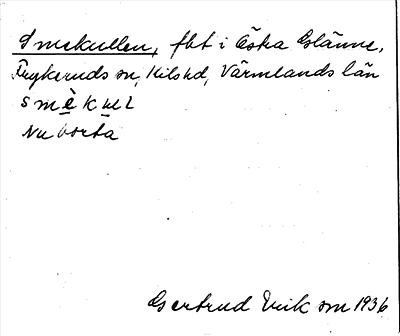 Smekullen, fbt i Östra Glänne,
Frykeruds sn, Kils hd, Värmlands län
smèkul
Nu borta
Gertrud Erikson 1936